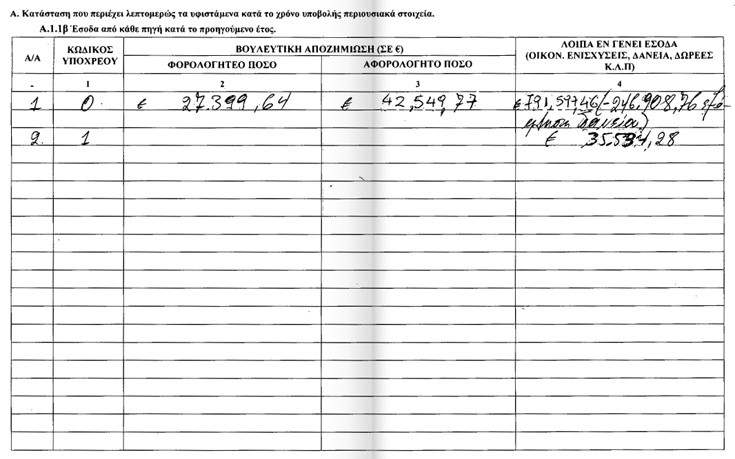 Α. Κατάσταση που περιέχει λεπτομερώς τα υφιστάμενα κατά το χρόνο υποβολής περιουσιακά στοιχεία.
Α.1.1β Έσοδα από κάθε πηγή κατά το προηγούμενο έτος.
Α/Α ΚΩΔΙΚΟΣ ΥΠΟΧΡΕΟΥ ΒΟΥΛΕΥΤΙΚΗ ΑΠΟΖΗΜΙΩΣΗ (ΣΕ €) ΛΟΙΠΑ ΕΝ ΓΕΝΕΙ ΕΣΟΔΑ
(ΟΙΚΟΝ. ΕΝΙΣΧΥΣΕΙΣ, ΔΑΝΕΙΑ, ΔΩΡΕΕΣ
Κ.Λ.Π)
ΦΟΡΟΛΟΓΗΤΕΟ ΠΟΣΟ ΑΦΟΡΟΛΟΓΗΤΟ ΠΟΣΟ
- 1 2 3 4
1 0 € 27.399,64 € 42,549,77 €
δανείω)
2. 1 € 35.537,28